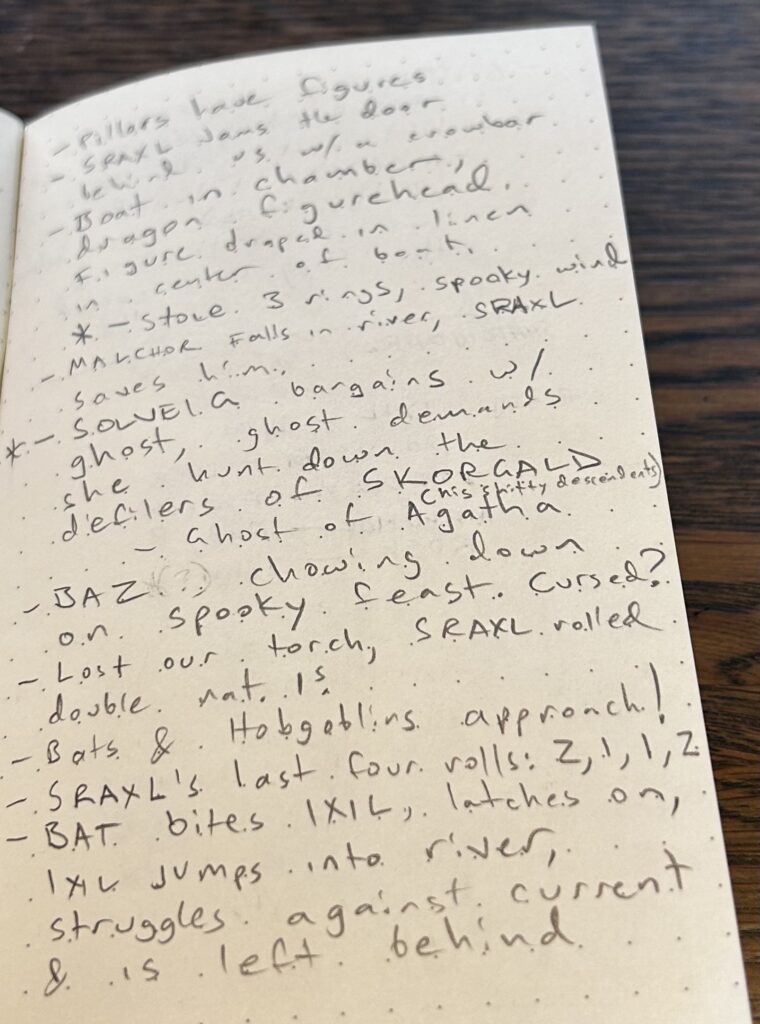 - Pillars have figures
- SRAXL Jams the door
behind us w/ a crowbar
- Boat in chamber,
dragon figurehead.
Figure draped in linen
in center of boat.
* - Stole 3 rings, spooky wind
- MALCHOR Falls in river, SRAXL
saves him.
* - SOLVEIG bargains w/
ghost, ghost demands
she hunt down the
defilers of SKORGALD
(his shitty descendents)
- Ghost of Agatha
- BAZ *(?) chowing down
on spooky feast. Cursed?
- Lost our torch, SRAXL rolled
double nat 1s
- Bats & Hobgoblins approach!
- SRAXL's last four rolls: 2, 1, 1, 2
- BAT bites IXIL, latches on,
IXIL Jumps into river,
struggles against current
& is left behind